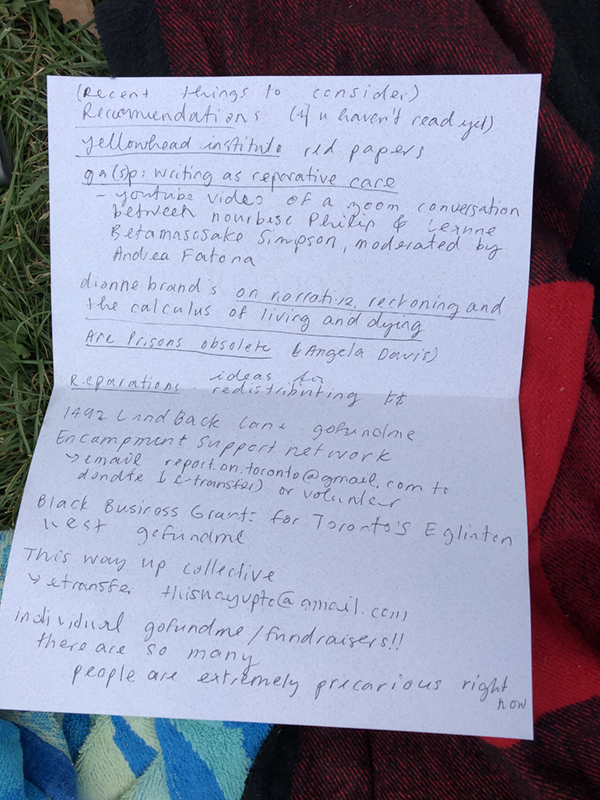 (Recent things to consider)
Recommendations (if u haven't read yet)
yellowhead institute red papers
ga(s)p: writing as reparative care
- youtube video of a zoom conversation
between nourbese Philip & Leanne
Betamasosake Simpson, moderated by
Andrea Fatona
dionne brand's on narrative, reckoning and
the calculus of living and dying
Are Prisons obsolete (Angela Davis)
Reparations. ideas for
redistributing $$
1492 Land Back Lane gofundme
Encampment Support network
↳ email report.on.toronto@gmail.com to
donate (e-transfer) or volunteer
Black Business Grants for Toronto's Eglinton
West gofundme
This way up collective
↳ etransfer thiswayupto@gmail.com
individual gofundme/fundraisers!!
there are so many
people are extremely precarious right
now